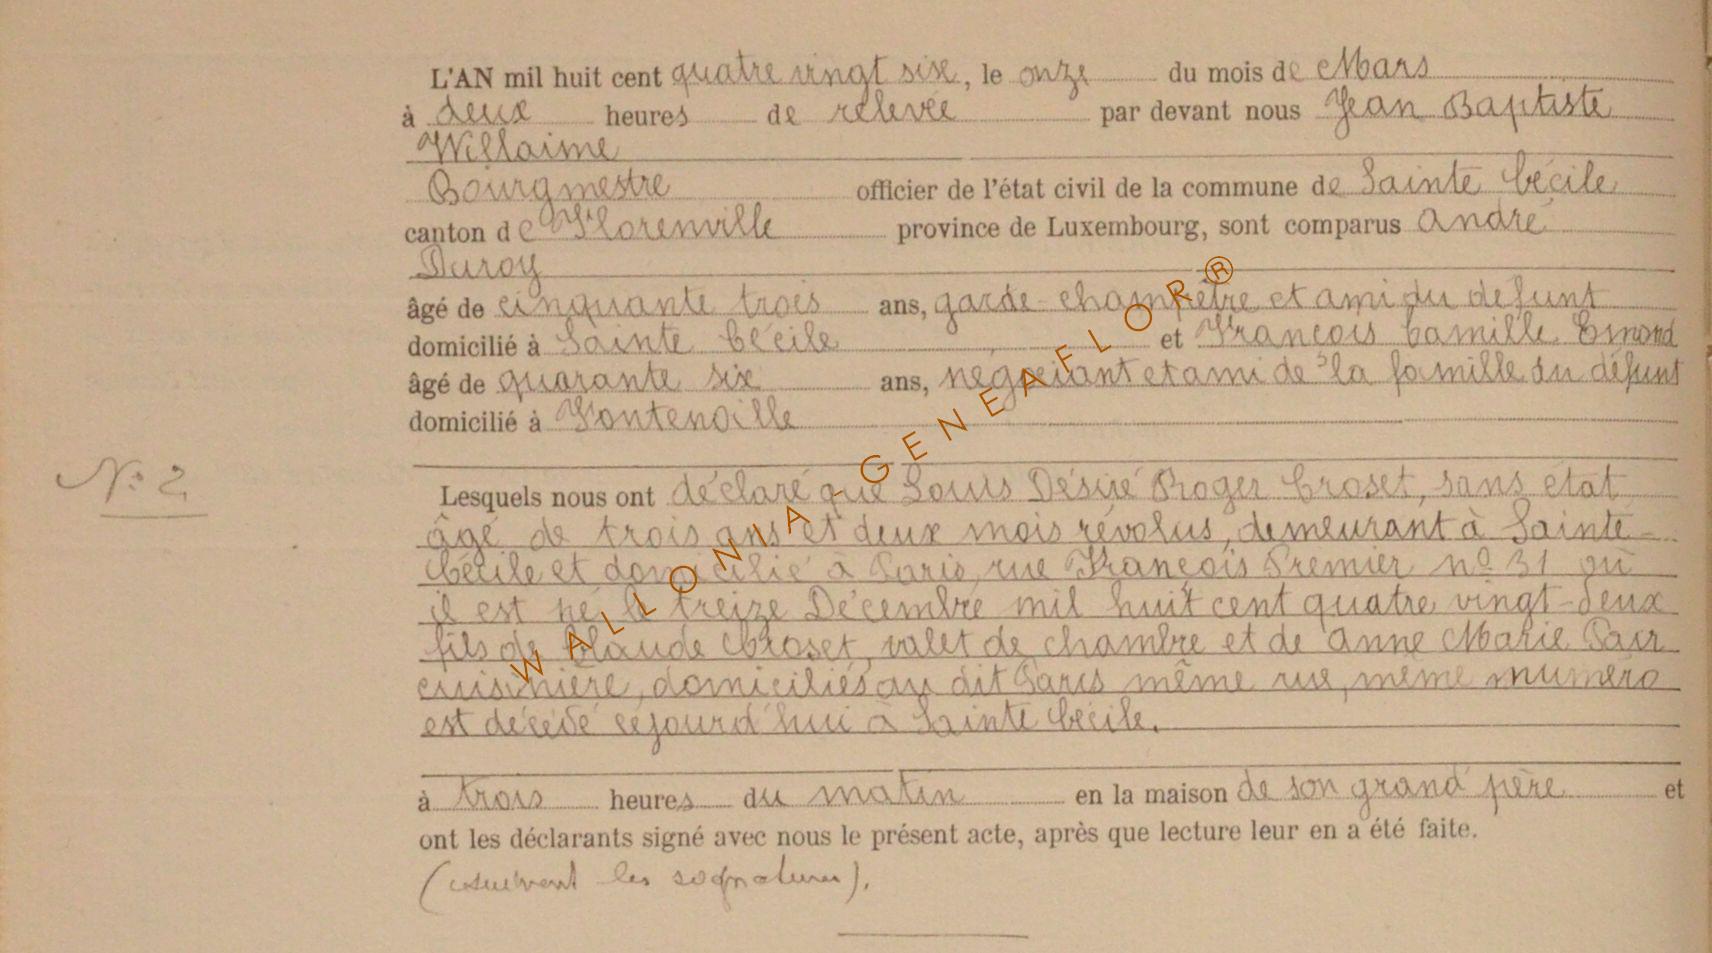 L'AN mil huit cent quatre vingt six, le onze du mois de Mars
à deux heures de relevée par devant nous Jean Baptiste
Willaime
Bourgmestre officier de l'état civil de la commune de Sainte Cécile
canton de Florenville province de Luxembourg, sont comparus André
Duroy
âgé de cinquante trois ans, garde-champêtre et ami du défunt
domicilié à Sainte Cécile et François Camille Emond
âgé de quarante six ans, négociant et ami de la famille du défunt
domicilié à Fontenoille
N° 2
Lesquels nous ont déclaré que Louis Désiré Roger Croset, sans état
âgé de trois ans et deux mois révolus, demeurant à Sainte-
Cécile et domicilié à Paris, rue François Premier n° 31 où
il est né le treize Décembre mil huit cent quatre vingt-deux
fils de Claude Croset, valet de chambre et de Anne Marie
cuisinière, domiciliés au dit Paris même rue, même numéro
est décédé cejourd'hui à Sainte Cécile.
à trois heures du matin en la maison de son grand père et
ont les déclarants signé avec nous le présent acte, après que lecture leur en a été faite.
(suivent les signatures).
WALLONIA - GENEAFLOR®